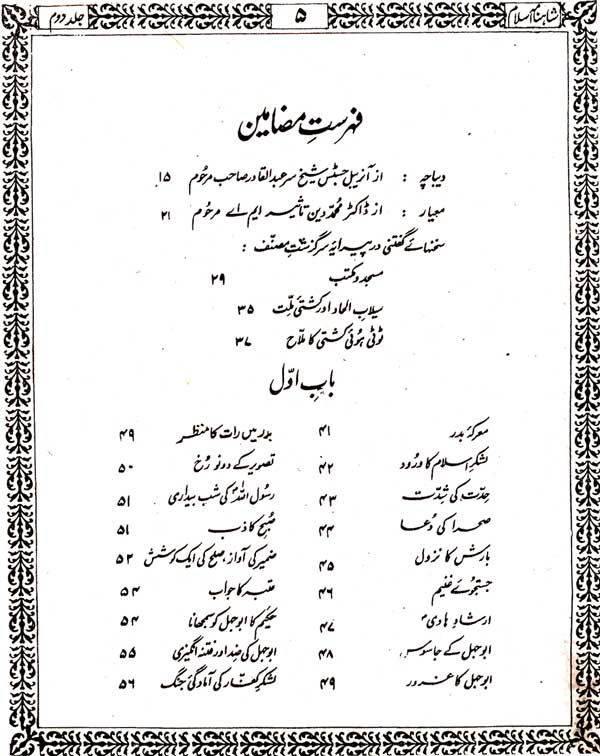 شاہنامہ اسلام
۵
جلد دوم
فہرستِ مضامین
دیباچہ : از آنریبل جسٹس شیخ سر عبدالقادر صاحب مرحوم ۱۵
معیار : از ڈاکٹر محمد دین تاثیر ایم اے مرحوم ۲۱
سخنہائے گفتنی در پیرایۂ سرگزشتِ مصنّف :
مسجد و مکتب ۲۹
سیلابِ الحاد اور کشتیٔ ملّت ۳۵
ٹوٹی ہوئی کشتی کا ملّاح ۳۷
بابِ اوّل
معرکۂ بدر ۴۱
لشکرِ اسلام کا ورُود ۴۲
حِدّت کی شِدّت ۴۳
صحرا کی دُعا ۴۴
بارش کا نزول ۴۵
جستجوئے غنیم ۴۶
ارشادِ ہادیؐ ۴۷
ابوجہل کے جاسوس ۴۸
ابوجہل کا غرور ۴۹
بدر میں رات کا منظر ۴۹
تصویر کے دونو رُخ ۵۰
رسُول اللہؐ کی شب بیداری ۵۱
صُبحِ کاذب ۵۱
ضمیر کی آواز، صلح کی ایک کوشش ۵۲
عتبہ کا جواب ۵۴
حکیم کا ابوجہل کو سمجھانا ۵۴
ابوجہل کی ضِد اور فتنہ انگیزی ۵۵
لشکرِ کفّار کی آمادگیٔ جنگ ۵۶